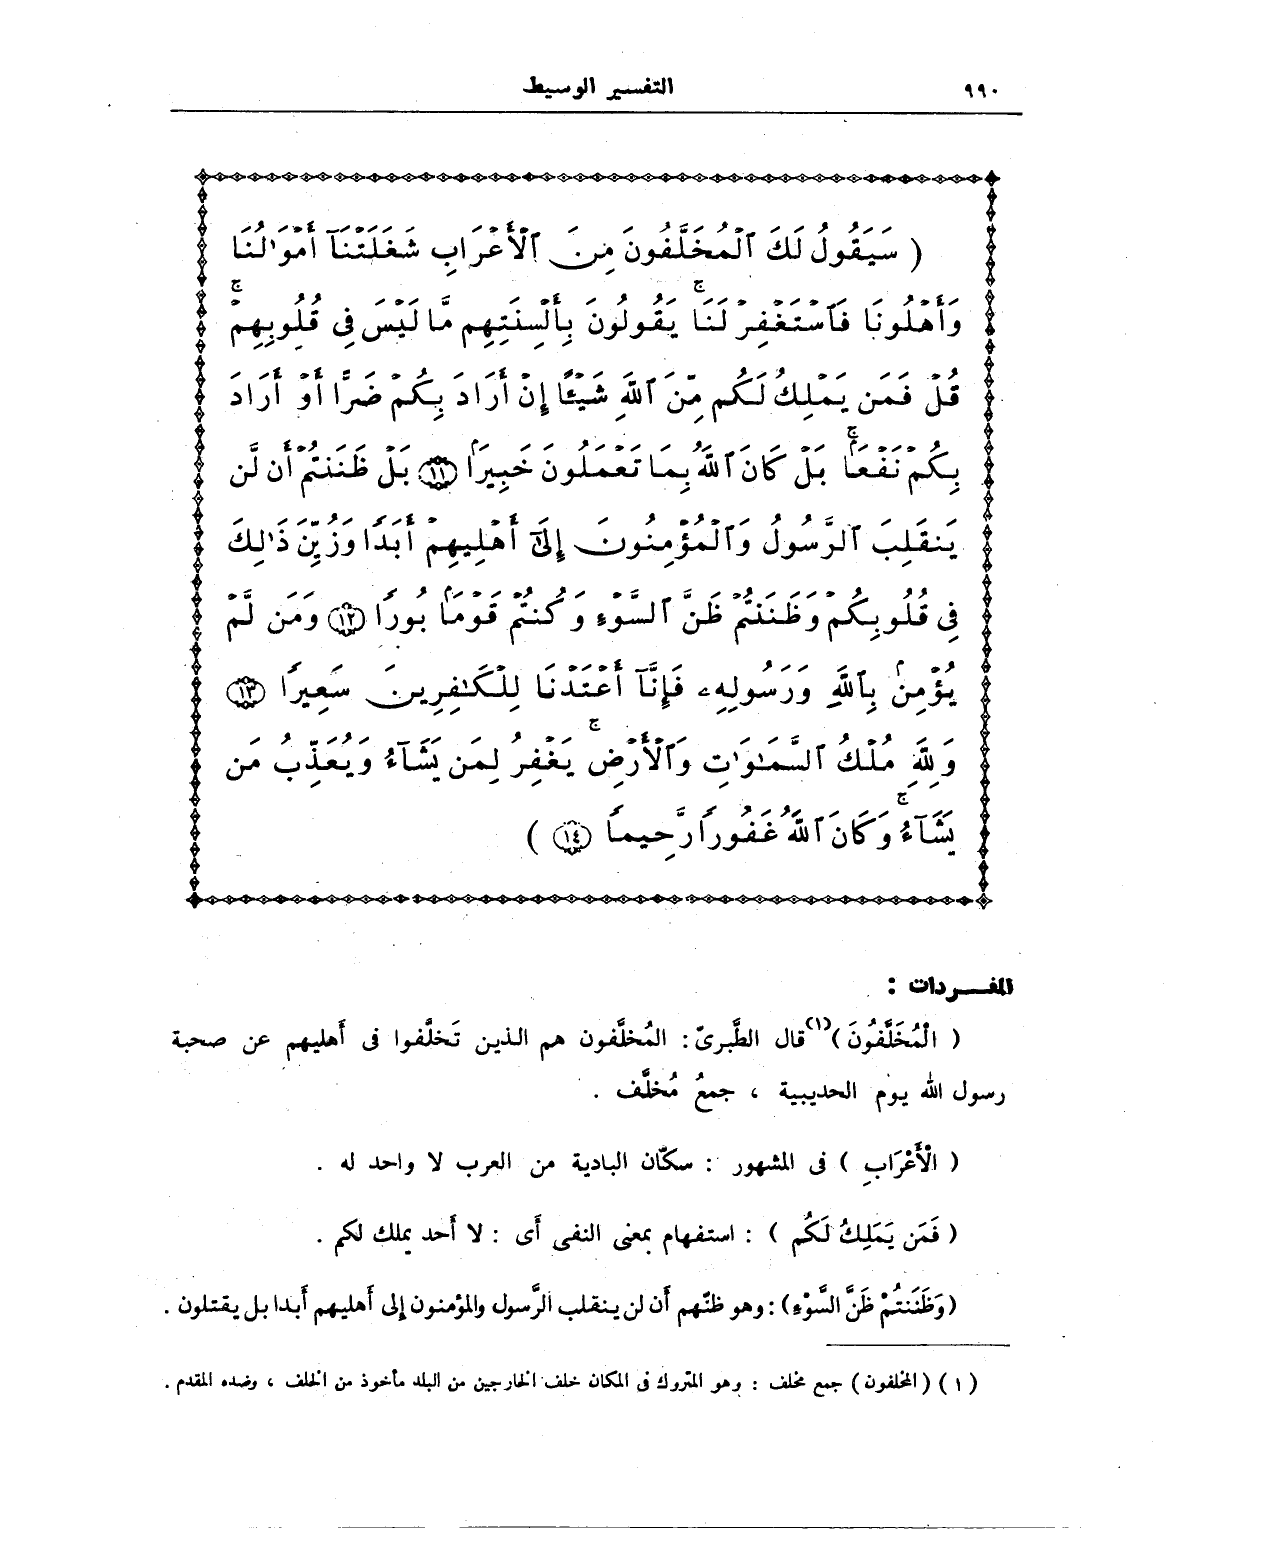 ٩٩٠
التفسير الوسيط
( سَيَقُولُ لَكَ ٱلْمُخَلَّفُونَ مِنَ ٱلْأَعْرَابِ شَغَلَتْنَآ أَمْوَٰلُنَا
وَأَهْلُونَا فَٱسْتَغْفِرْ لَنَا ۚ يَقُولُونَ بِأَلْسِنَتِهِم مَّا لَيْسَ فِى قُلُوبِهِمْ ۚ
قُلْ فَمَن يَمْلِكُ لَكُم مِّنَ ٱللَّهِ شَيْـًٔا إِنْ أَرَادَ بِكُمْ ضَرًّا أَوْ أَرَادَ
بِكُمْ نَفْعَۢا ۚ بَلْ كَانَ ٱللَّهُ بِمَا تَعْمَلُونَ خَبِيرَۢا ﴿١١﴾ بَلْ ظَنَنتُمْ أَن لَّن
يَنقَلِبَ ٱلرَّسُولُ وَٱلْمُؤْمِنُونَ إِلَىٰٓ أَهْلِيهِمْ أَبَدًا وَزُيِّنَ ذَٰلِكَ
فِى قُلُوبِكُمْ وَظَنَنتُمْ ظَنَّ ٱلسَّوْءِ وَكُنتُمْ قَوْمَۢا بُورًا ﴿١٢﴾ وَمَن لَّمْ
يُؤْمِنۢ بِٱللَّهِ وَرَسُولِهِۦ فَإِنَّآ أَعْتَدْنَا لِلْكَـٰفِرِينَ سَعِيرًا ﴿١٣﴾
وَلِلَّهِ مُلْكُ ٱلسَّمَـٰوَٰتِ وَٱلْأَرْضِ ۚ يَغْفِرُ لِمَن يَشَآءُ وَيُعَذِّبُ مَن
يَشَآءُ ۚ وَكَانَ ٱللَّهُ غَفُورًا رَّحِيمًا ﴿١٤﴾ )
المفــردات :
( الْمُخَلَّفُونَ )(١) قال الطَّبرىّ : المُخلَّفون هم الذين تَخلَّفوا فى أَهليهم عن صحبة
رسول الله يوم الحديبية ، جمعُ مُخلَّف .
( الْأَعْرَابِ ) فى المشهور : سكَّان البادية من العرب لا واحد له .
( فَمَن يَمْلِكُ لَكُم ) : استفهام بمعنى النفى أَى : لا أَحد يملك لكم .
( وَظَنَنتُمْ ظَنَّ السَّوْءِ ) : وهو ظنّهم أَن لن ينقلب الرَّسول والمؤمنون إلى أَهليهم أَبدا بل يقتلون .
( ١ ) ( المخلفون ) جمع مخلف : وهو المتروك فى المكان خلف الخارجين من البلد مأخوذ من الخلف ، وضده المقدم .